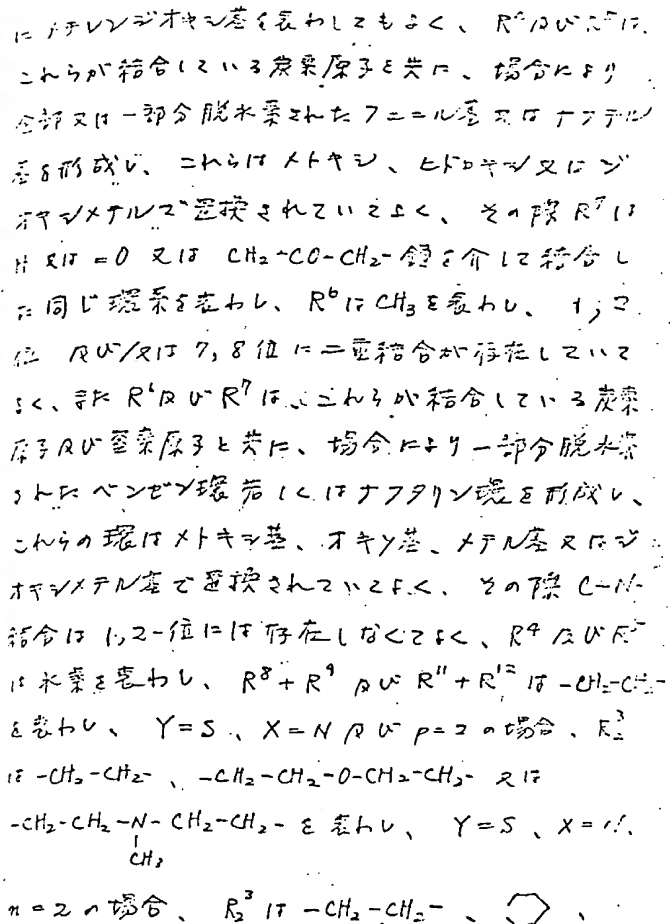 にメチレンジオキシ基を表わしてもよく、R⁴及びR⁵は、
これらが結合している炭素原子と共に、場合により
全部又は一部分脱水素されたフェニル基又はナフチル
基を形成し、これらはメトキシ、ヒドロキシ又はジ
オキシメチルで置換されていてよく、その際R⁷は
H又は=O又はCH₂-CO-CH₂-鎖を介して結合し
た同じ環系を表わし、R⁶はCH₃を表わし、1,2
位及び/又は7,8位に二重結合が存在していて
よく、またR⁶及びR⁷は、これらが結合している炭素
原子及び窒素原子と共に、場合により一部分脱水素
されたベンゼン環若しくはナフタリン環を形成し、
これらの環はメトキシ基、オキソ基、メチル基又はジ
オキシメチル基で置換されていてよく、その際C-N-
結合は1,2-位には存在しなくてよく、R⁴及びR⁵
は水素を表わし、R⁸+R⁹及びR¹¹+R¹²は-CH₂-CH₂-
を表わし、Y=S、X=N及びp=2の場合、R₂³
は-CH₂-CH₂-、-CH₂-CH₂-O-CH₂-CH₂-又は
-CH₂-CH₂-N-CH₂-CH₂-を表わし、Y=S、X=N、
CH₃
n=2の場合、R₂³は-CH₂-CH₂-、、